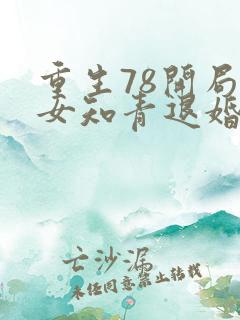 重生78开局
女知青退婚
亡沙漏
未经同意禁止转载